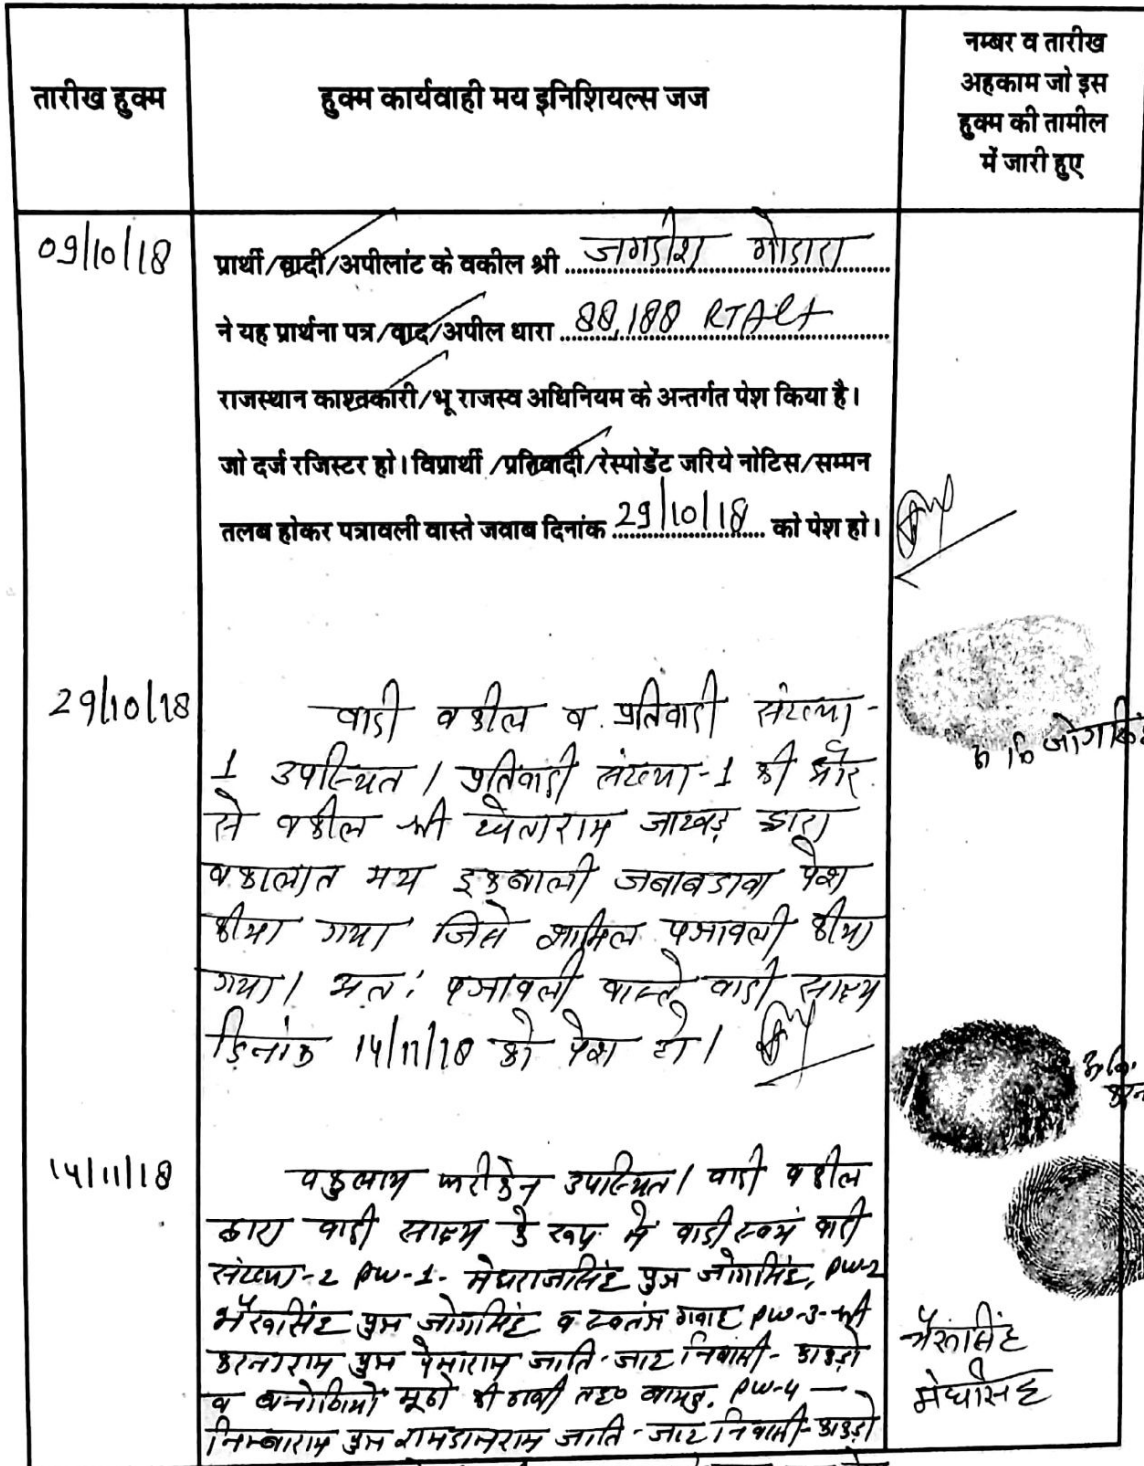 तारीख हुक्म
हुक्म कार्यवाही मय इनिशियल्स जज
नम्बर व तारीख
अहकाम जो इस
हुक्म की तामील
में जारी हुए
09/10/18
प्रार्थी/वादी/अपीलांट के वकील श्री जगदीश गोदारा
ने यह प्रार्थना पत्र/वाद/अपील धारा 88,188 RTAct
राजस्थान काश्तकारी/भू राजस्व अधिनियम के अन्तर्गत पेश किया है।
जो दर्ज रजिस्टर हो। विप्रार्थी /प्रतिवादी/रेस्पोडेंट जरिये नोटिस/सम्मन
तलब होकर पत्रावली वास्ते जवाब दिनांक 29/10/18 को पेश हो।
29/10/18
वादी वकील व प्रतिवादी संख्या-
1 उपस्थित। प्रतिवादी संख्या-1 की ओर
से वकील श्री जाखड़ द्वारा
वकालात मय इकबाली जवाबदावा पेश
कीया गया जिसे शामिल पत्रावली कीया
गया। अतः पत्रावली वास्ते वादी साक्ष्य
दिनांक 14/11/18 को पेश हो।
जोगसिंह
14/11/18
वकुलाय फरीकेन उपस्थित। वादी वकील
द्वारा वादी साक्ष्य के रूप में वादी स्वयं वादी
संख्या-2 PW-1- मेघराजसिंह पुत्र जोगसिंह, PW-2
भैरूसिंह पुत्र जोगसिंह व स्वतंत्र गवाह PW-3-श्री
पुत्र पेमाराम जाति-जाट निवासी-
व की ढाणी तह० PW-4 —
निम्बाराम पुत्र रामदानराम जाति-जाट निवासी-
भैरूसिंह
मेघसिंह